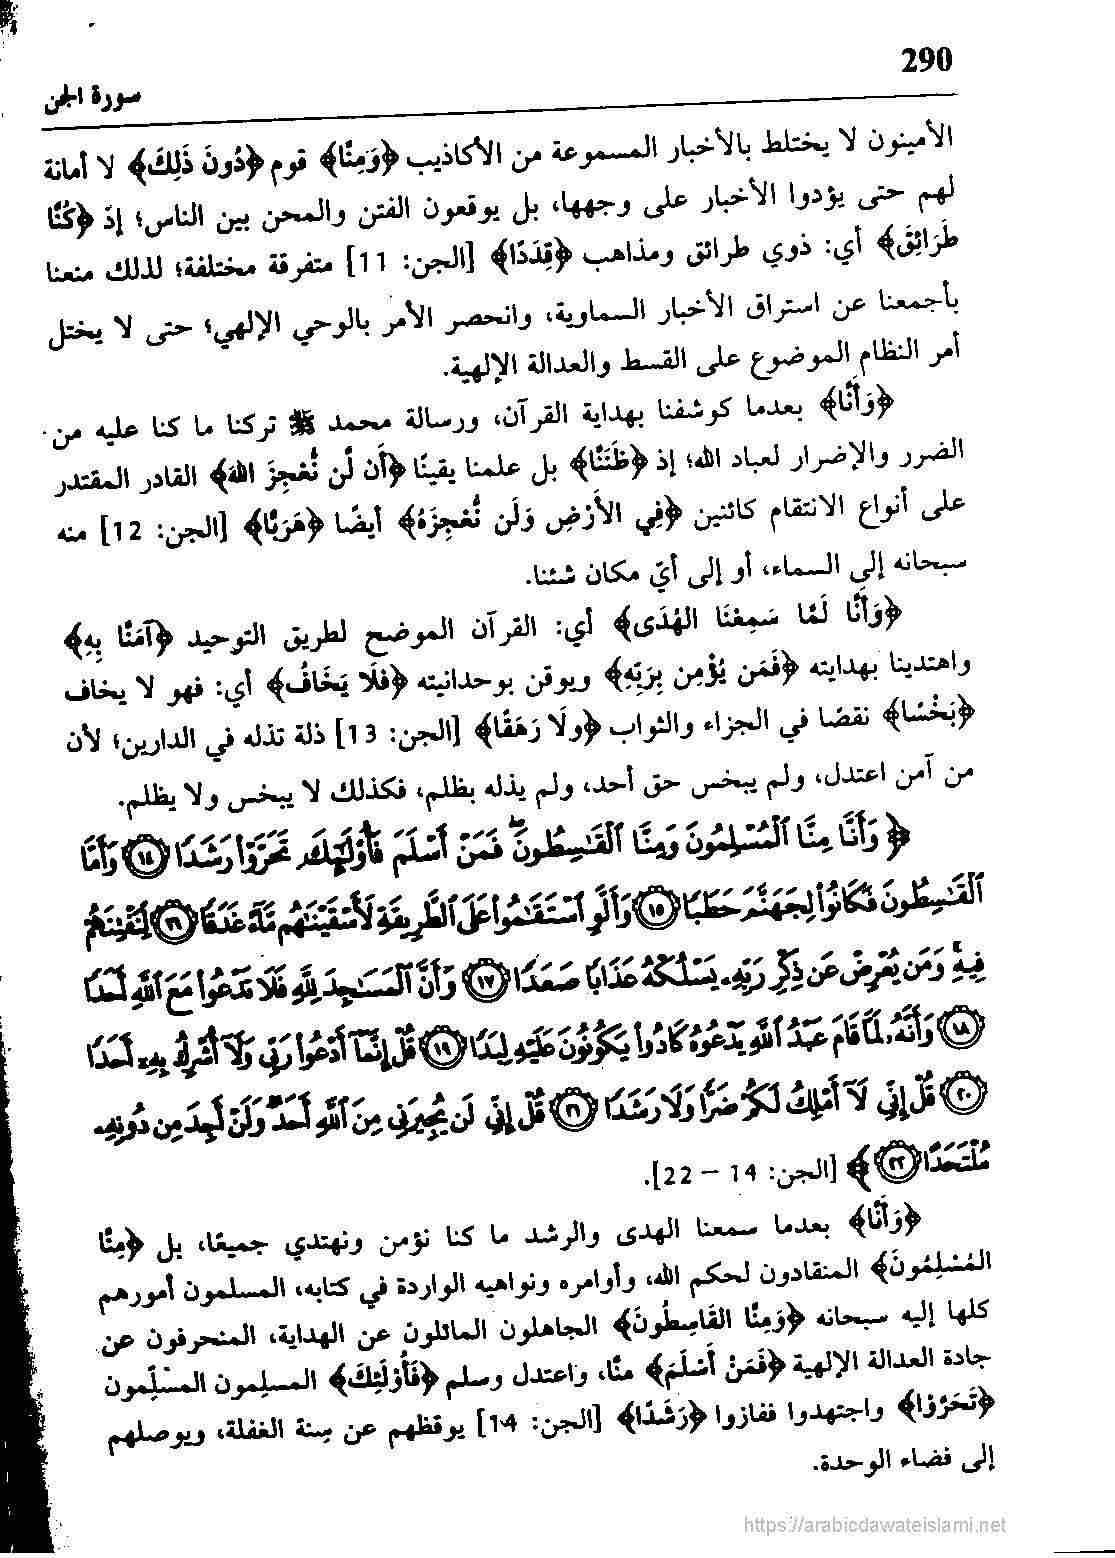 290
سورة الجن
الأمينون لا يختلط بالأخبار المسموعة من الأكاذيب ﴿وَمِنَّا﴾ قوم ﴿دُونَ ذَلِكَ﴾ لا أمانة
لهم حتى يؤدوا الأخبار على وجهها، بل يوقعون الفتن والمحن بين الناس؛ إذ ﴿كُنَّا
طَرَائِقَ﴾ أي: ذوي طرائق ومذاهب ﴿قِدَدًا﴾ [الجن: 11] متفرقة مختلفة؛ لذلك منعنا
بأجمعنا عن استراق الأخبار السماوية، وانحصر الأمر بالوحي الإلهي؛ حتى لا يختل
أمر النظام الموضوع على القسط والعدالة الإلهية.
﴿وَأَنَّا﴾ بعدما كوشفنا بهداية القرآن، ورسالة محمد ﷺ تركنا ما كنا عليه من
الضرر والإضرار لعباد الله؛ إذ ﴿ظَنَنَّا﴾ بل علمنا يقينًا ﴿أَن لَّن نُّعْجِزَ اللهَ﴾ القادر المقتدر
على أنواع الانتقام كائنين ﴿فِي الأَرْضِ وَلَن نُّعْجِزَهُ﴾ أيضًا ﴿هَرَبًا﴾ [الجن: 12] منه
سبحانه إلى السماء، أو إلى أيّ مكان شئنا.
﴿وَأَنَّا لَمَّا سَمِعْنَا الهُدَى﴾ أي: القرآن الموضح لطريق التوحيد ﴿آمَنَّا بِهِ﴾
واهتدينا بهدايته ﴿فَمَن يُؤْمِن بِرَبِّهِ﴾ ويوقن بوحدانيته ﴿فَلَا يَخَافُ﴾ أي: فهو لا يخاف
﴿بَخْسًا﴾ نقصًا في الجزاء والثواب ﴿ولَا رَهَقًا﴾ [الجن: 13] ذلة تذله في الدارين؛ لأن
من آمن اعتدل، ولم يبخس حق أحد، ولم يذله بظلم، فكذلك لا يبخس ولا يظلم.
﴿ وَأَنَّا مِنَّا ٱلْمُسْلِمُونَ وَمِنَّا ٱلْقَٰسِطُونَ ۖ فَمَنْ أَسْلَمَ فَأُو۟لَٰٓئِكَ تَحَرَّوْا۟ رَشَدًا ١٤ وَأَمَّا
ٱلْقَٰسِطُونَ فَكَانُوا۟ لِجَهَنَّمَ حَطَبًا ١٥ وَأَلَّوِ ٱسْتَقَٰمُوا۟ عَلَى ٱلطَّرِيقَةِ لَأَسْقَيْنَٰهُم مَّآءً غَدَقًا ١٦ لِّنَفْتِنَهُمْ
فِيهِ ۚ وَمَن يُعْرِضْ عَن ذِكْرِ رَبِّهِۦ يَسْلُكْهُ عَذَابًا صَعَدًا ١٧ وَأَنَّ ٱلْمَسَٰجِدَ لِلَّهِ فَلَا تَدْعُوا۟ مَعَ ٱللَّهِ أَحَدًا
١٨ وَأَنَّهُۥ لَمَّا قَامَ عَبْدُ ٱللَّهِ يَدْعُوهُ كَادُوا۟ يَكُونُونَ عَلَيْهِ لِبَدًا ١٩ قُلْ إِنَّمَآ أَدْعُوا۟ رَبِّى وَلَآ أُشْرِكُ بِهِۦٓ أَحَدًا
٢٠ قُلْ إِنِّى لَآ أَمْلِكُ لَكُمْ ضَرًّا وَلَا رَشَدًا ٢١ قُلْ إِنِّى لَن يُجِيرَنِى مِنَ ٱللَّهِ أَحَدٌ وَلَنْ أَجِدَ مِن دُونِهِۦ
مُلْتَحَدًا ٢٢ ﴾ [الجن: 14 – 22].
﴿وَأَنَّا﴾ بعدما سمعنا الهدى والرشد ما كنا نؤمن ونهتدي جميعًا، بل ﴿مِنَّا
المُسْلِمُونَ﴾ المنقادون لحكم الله، وأوامره ونواهيه الواردة في كتابه، المسلمون أمورهم
كلها إليه سبحانه ﴿وَمِنَّا القَاسِطُونَ﴾ الجاهلون المائلون عن الهداية، المنحرفون عن
جادة العدالة الإلهية ﴿فَمَنْ أَسْلَمَ﴾ منَّا، واعتدل وسلم ﴿فَأُوْلَئِكَ﴾ المسلِمون المسَلِّمون
﴿تَحَرَّوْا﴾ واجتهدوا ففازوا ﴿رَشَدًا﴾ [الجن: 14] يوقظهم عن سِنة الغفلة، ويوصلهم
إلى فضاء الوحدة.
https://arabicdawateislami.net